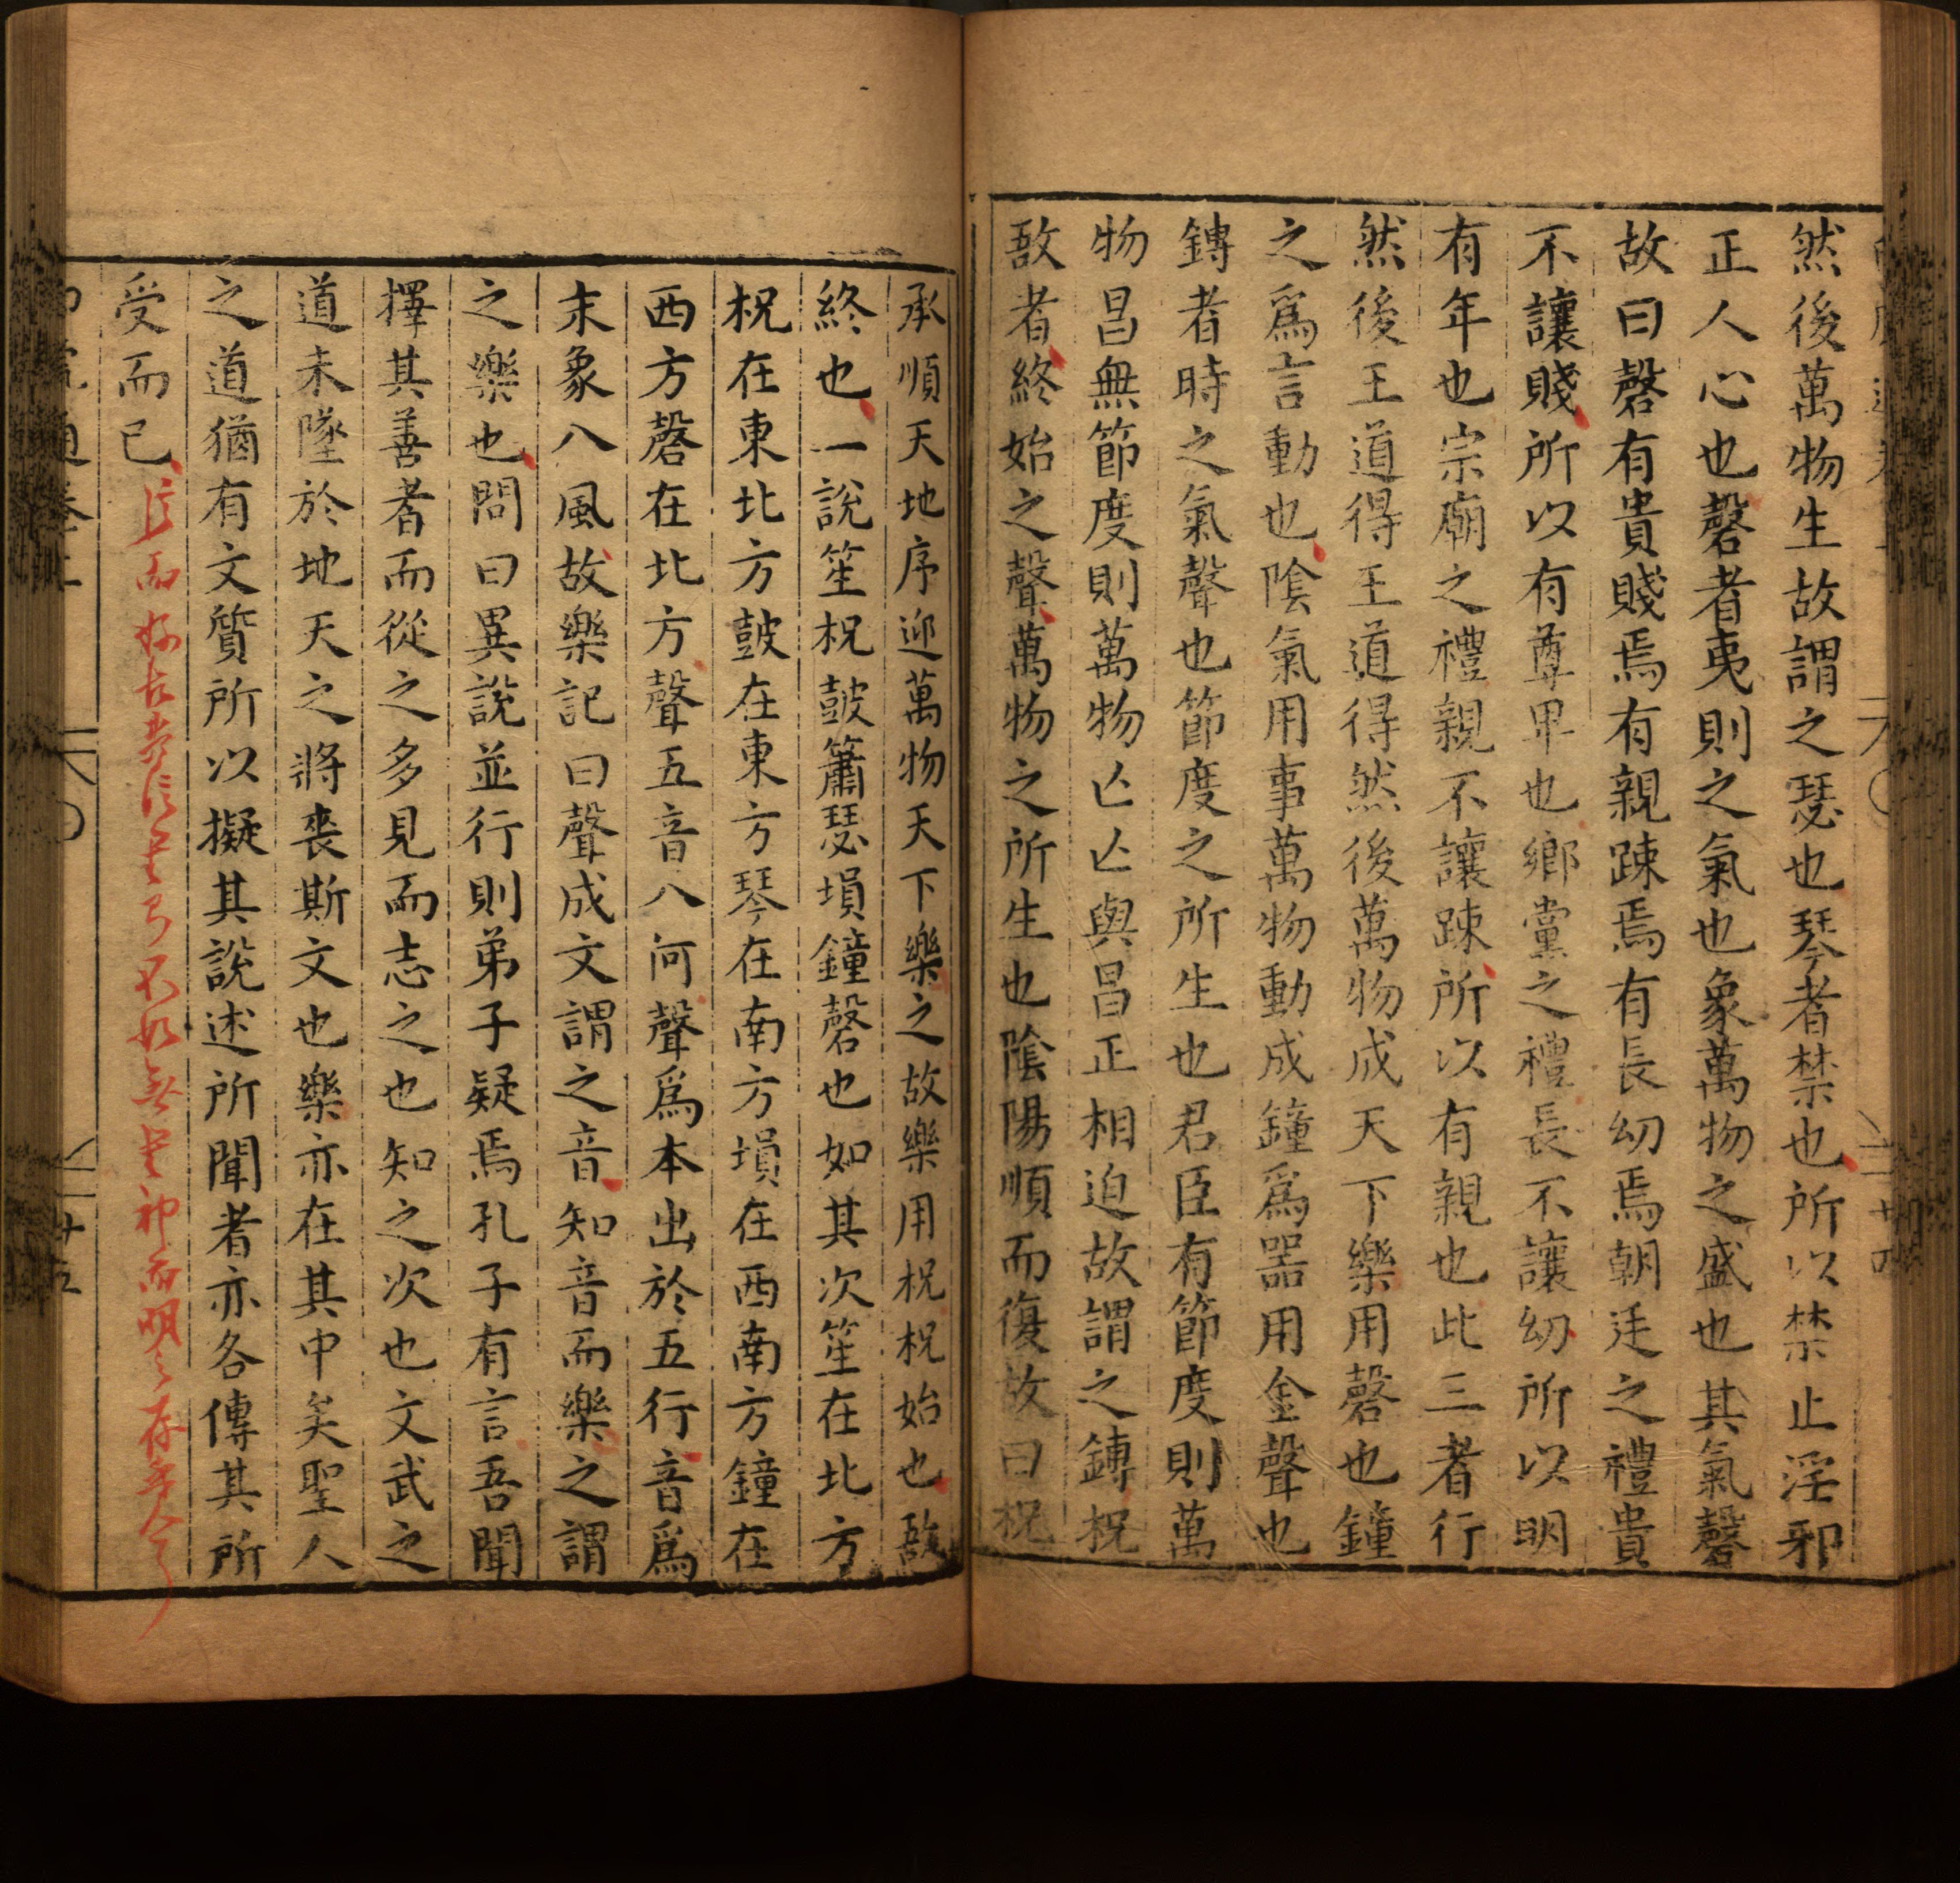 然後萬物生故謂之瑟也琴者禁也所以禁止淫邪
正人心也磬者夷則之氣也象萬物之盛也其氣磬
故曰磬有貴賤焉有親踈焉有長幼焉朝廷之禮貴
不讓賤所以有尊卑也鄉黨之禮長不讓幼所以明
有年也宗廟之禮親不讓踈所以有親也此三者行
然後王道得王道得然後萬物成天下樂用磬也鐘
之爲言動也陰氣用事萬物動成鐘爲噐用金聲也
鎛者時之氣聲也節度之所生也君臣有節度則萬
物昌無節度則萬物亡亡與昌正相迫故謂之鎛柷
敔者終始之聲萬物之所生也陰陽順而復故曰柷
承順天地序迎萬物天下樂之故樂用柷柷始也敔
終也一說笙柷鼓簫瑟塤鐘磬也如其次笙在北方
柷在東北方鼓在東方琴在南方塤在西南方鐘在
西方磬在北方聲五音八何聲爲本出於五行音爲
末象八風故樂記曰聲成文謂之音知音而樂之謂
之樂也問曰異說並行則弟子疑焉孔子有言吾聞
擇其善者而從之多見而志之也知之次也文武之
道未墜於地天之將喪斯文也樂亦在其中矣聖人
之道猶有文質所以擬其說述所聞者亦各傳其所
受而已